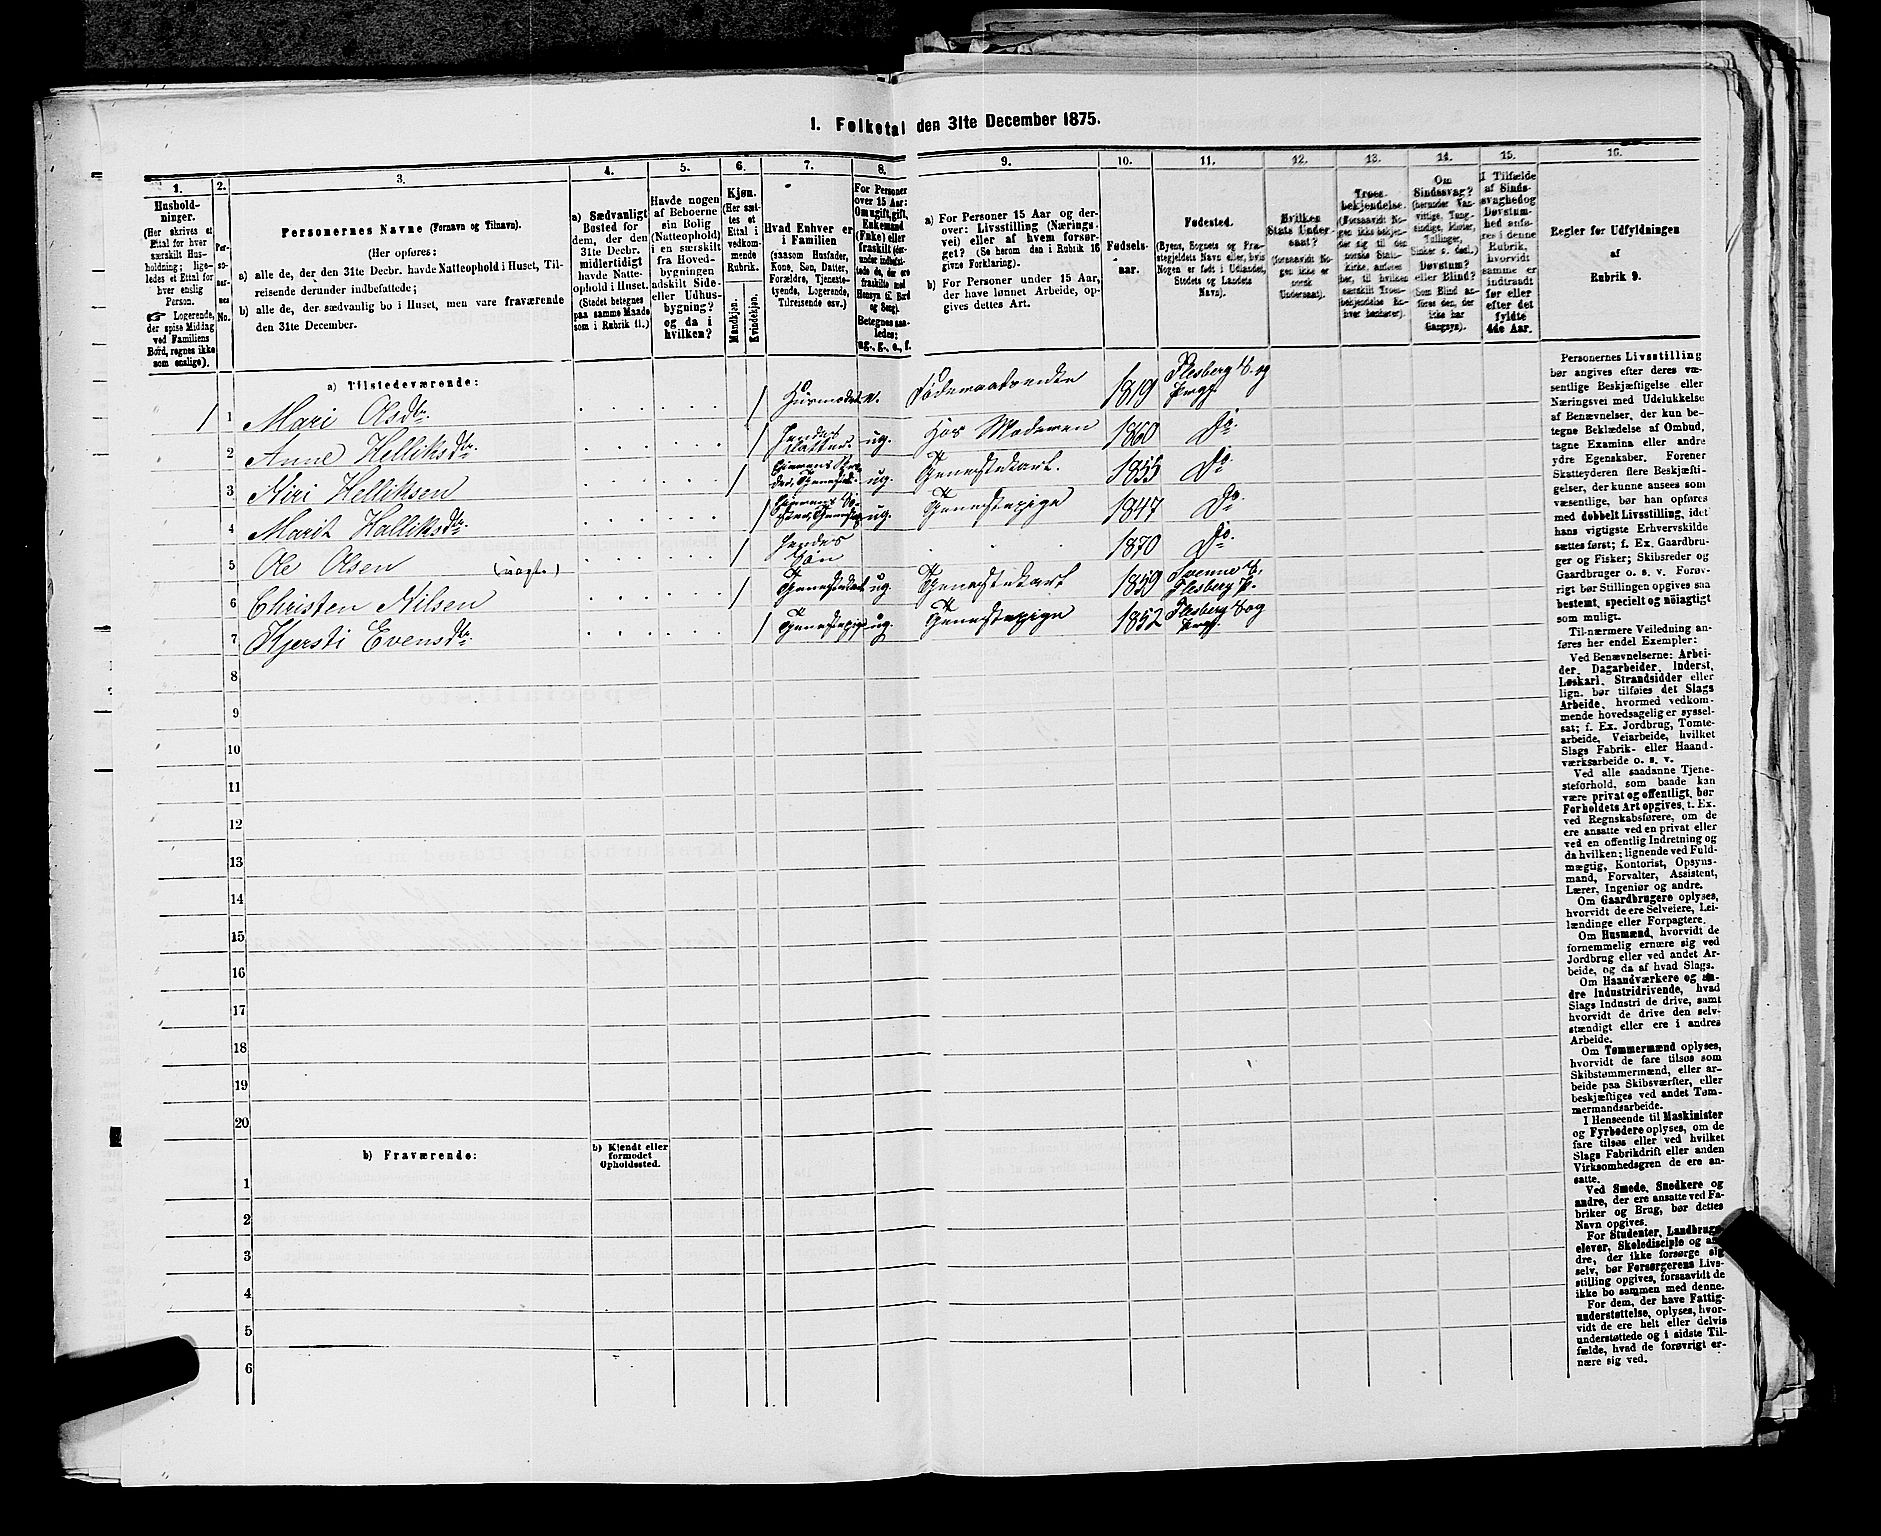 1. Folketal den 31te December 1875.
1.
2.
3.
4.
5.
6.
7.
8.
9.
10.
11.
12.
13.
14.
15.
16.
Hushold-
ninger.
(Her skrives et
Ettal for hver
særskilt Hus-
holdning; lige-
ledes et Ettal for
hver enslig
Person.
☞ Logerende,
der spise Middag
ved Familiens
Bord, regnes ikke
som enslige).
Per-
so-
ner-
nes
No.
Personernes Navne (Fornavn og Tilnavn).
(Her opføres:
a) alle de, der den 31te Decbr. havde Natteophold i Huset, Til-
reisende derunder indbefattede;
b) alle de, der sædvanlig bo i Huset, men vare fraværende
den 31te December.
a) Sædvanligt
Bosted for
dem, der den
31te Decbr.
midlertidigt
havde Natte-
ophold i Huset.
(Stedet betegnes
paa samme Maade
som i Rubrik 11.)
Havde nogen
af Beboerne
sin Bolig
(Natteophold)
i en særskilt
fra Hoved-
bygningen
adskilt Side-
eller Udhus-
bygning?
og da i
hvilken?
Kjøn.
(Her sæt-
tes et
Ettal i
vedkom-
mende
Rubrik.
Mandkjøn.
Kvindekjøn.
Hvad Enhver er
i Familien
(saasom Husfader,
Kone, Søn, Datter,
Forældre, Tjeneste-
tyende, Logerende,
Tilreisende osv.)
For Personer
over 15 Aar:
Om ugift, gift,
Enkemand
(Enke) eller
fraskilt
under indbefat-
tede de, der ere
fraskilte med
Hensyn til Bord
og Seng).
Betegnes saa-
ledes:
ug., g., e., f.
a) For Personer 15 Aar og der-
over: Livsstilling (Nærings-
vei) eller af hvem forsør-
get? (Se herom den i Rubrik 16
givne Forklaring).
b) For Personer under 15 Aar,
der have lønnet Arbeide, op-
gives dettes Art.
Fødsels-
aar.
Fødested.
(Byens, Sognets og Præ-
stegjeldets Navn eller, hvis
Nogen er født i Udlandet,
Stedets og Landets
Navn).
Hvilken
Stats Under-
saat?
(forsaavidt No-
gen ikke er
norsk
Undersaat).
Troes-
bekjendelse.
(Forsaavidt No-
gen ikke bekjen-
der sig til den
norske Stats-
kirke, anføres
her, til hvilken
særskilt Troes-
bekjendelse En-
hver henhører).
Om
Sindssvag?
(herunder Van-
vittige, Tung-
sindige, Idioter,
Tullinger,
Sinker o. desl.)
Døvstum?
eller Blind?
(Som Blind an-
føres den, der
ikke har
Gangsyn).
I Tilfælde
af Sinds-
svaghed og
Døvstum-
hed anfø-
res i denne
Rubrik,
hvorvidt
samme er
indtraadt
før eller
efter det
fyldte
4de Aar.
Regler for Udfyldningen
af
Rubrik 9.
a) Tilstedeværende:
1 1 Mari Olsdtr. 1 Husmoder e. Føderaadsenke 1819 Flesberg S. og Prgj.
2 Anne Helliksdtr. 1 hendes Datter ug. Hos Moderen 1860 Do.
3 Niri Helliksen 1 ug. Tjenestekarl. 1855 Do
4 Marit Halliksdtr. 1 ug. Tjenestepige 1847 Do.
5 Ole Olsen 1 hendes Søn 1870 Do.
6 Christen Nilsen 1 Tjenestekarl ug. Tjenestekarl 1859 Svenne S. Flesberg P.
7 Kjersti Evensdtr. 1 Tjenestepige ug. Tjenestepige 1852 Flesberg S. og Prgj.
8
9
10
11
12
13
14
15
16
17
18
19
20
b) Fraværende:
b) Kjendt eller
formodet
Opholdssted.
1
2
3
4
5
6
Personernes Livsstilling
bør angives efter deres væ-
sentlige Beskjæftigelse eller
Næringsvei med Udelukkelse
af Benævnelser, der kun be-
tegne Beklædelse af Ombud,
tagne Examina eller andre
ydre Egenskaber. Forener
Skatteyderen flere Beskjæfti-
gelser, der kunne ansees som
væsentlige, bør han opføres
med dobbelt Livsstilling, idet
hans vigtigste Erhvervskilde
sættes først; f. Ex. Gaardbru-
ger og Fisker; Skibsreder og
Gaardbruger o. s. v. Forøv-
rigt bør Stillingen opgives saa
bestemt, specielt og nöiagtigt
som muligt.
Til nærmere Veiledning an-
føres her endel Exempler:
Ved Benævnelserne: Arbei-
der, Dagarbeider, Inderst,
Løskarl, Strandsidder eller
lign. bør tilføies det Slags
Arbeide, hvormed vedkom-
mende hovedsagelig er syssel-
sat; f. Ex. Jordbrug, Tomte-
arbeide, Veiarbeide, hvilket
Slags Fabrik- eller Haand-
værksarbeide o. s. v.
Ved alle saadanne Tjene-
steforhold, som baade kan
være privat og offentligt, bør
Forholdets Art opgives, t. Ex.
ved Regnskabsførere, om de
ere ansatte ved en privat eller
ved en offentlig Indretning og
da hvilken; lignende ved Fuld-
mægtig, Kontorist, Opsyns-
mand, Forvalter, Assistent,
Lærer, Ingeniør og andre.
Om Gaardbrugere oplyses,
hvorvidt de ere Selveiere, Lei-
lændinge eller Forpagtere.
Om Husmænd, hvorvidt de
fornemmelig ernære sig ved
Jordbrug eller ved andet Ar-
beide, og da af hvad Slags.
Om Haandværkere og an-
dre Industridrivende, hvad
Slags Industri de drive, samt
hvorvidt de drive den selv-
stændigt eller ere i andres
Arbeide.
Om Tømmermænd oplyses,
hvorvidt de fare tilsøs som
Skibstømmermænd, eller ar-
beide paa Skibsværfter, eller
beskjæftiges ved andet Tøm-
mermandsarbeide.
I Henseende til Maskinister
og Fyrbødere oplyses, om de
fare tilsøs eller ved hvilket
Slags Fabrikdrift eller anden
Virksomhedsgren de ere an-
satte.
Ved Smede, Snedkere og
andre, der ere ansatte ved Fa-
briker og Brug, bør dettes
Navn opgives.
For Studenter, Landbrugs-
elever, Skoledisciple og an-
dre, der ikke forsørge sig
selv, bør Forsørgerens Livs-
stilling opgives, forsaavidt de
ikke bo sammen med denne.
For dem, der have Fattig-
understøttelse, oplyses, hvor-
vidt de ere helt eller delvis
understøttede og i sidste Til-
fælde, hvad de forøvrigt er-
nære sig ved.